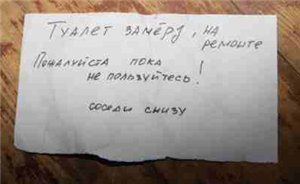 Туалет замёрз, на
ремонте
Пожалуйста пока
не пользуйтесь!
соседи снизу